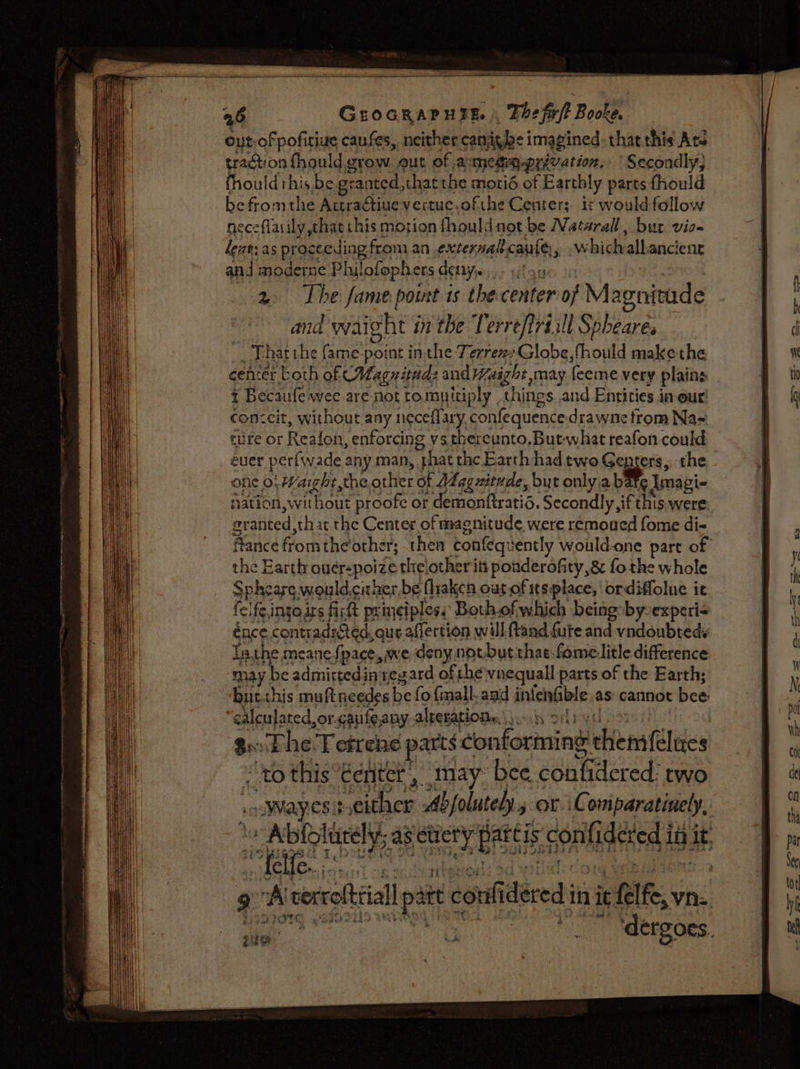 26 GEOGRAPHIE. The first Booke.
out of positiue causes, neither can it be imagined that this At-
traction should grow out of a meere privation. Secondly,
should this be granted, that the motiō of Earthly parts should
be from the Attractiue vertue of the Center; it would follow
necessarily, that this motion should not be Naturall, but vio-
lent: as proceeding from an externall cause, which all ancient
and moderne Philosophers deny.
2 The same point is the center of Magnitude
and waight in the Terrestriall Spheare.
That the same point in the Terrene Globe, should make the
center both of Magnitude and Waight, may seeme very plaine
1 Because wee are not to multiply things and Entities in our
conceit, without any necessary consequence drawne from Na-
ture or Reason, enforcing vs thereunto. But what reason could
euer perswade any man, that the Earth had two Centers, the
one of Waight, the other of Magnitude, but only a bare Imagi-
nation, without proofe or demonstratiō. Secondly, if this were
granted, that the Center of magnitude were remoued some di-
stance from the other; then consequently would one part of
the Earth ouer-poize the other in ponderosity, & so the whole
Spheare would either be shaken out of its place, or dissolue it
selfe into its first principles. Both of which being by experi-
ēnce contradicted, our assertion will stand sure and vndoubted.
In the meane space, we deny not but that some litle difference
may be admitted in regard of the vnequall parts of the Earth;
but this must needes be so small, and insensible as cannot bee
calculated, or cause any alteration.
8 The Terrene parts conforming themselues
to this Center, may bee considered two
wayes: either Absolutely, or Comparatiuely.
Absolutely; as euery part is considered in it
selfe.
9 A terrestriall part considered in it selfe, vn-
dergoes